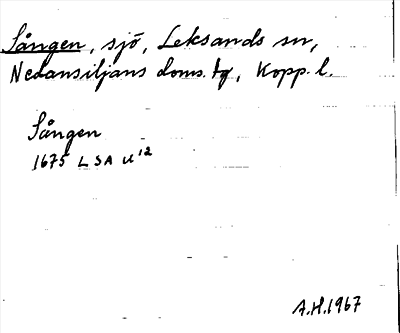 Sången, sjö, Leksands sn,
Nedansiljans doms. tg, Kopp. l.
Sången
1675 LSA U¹²
A.H. 1967